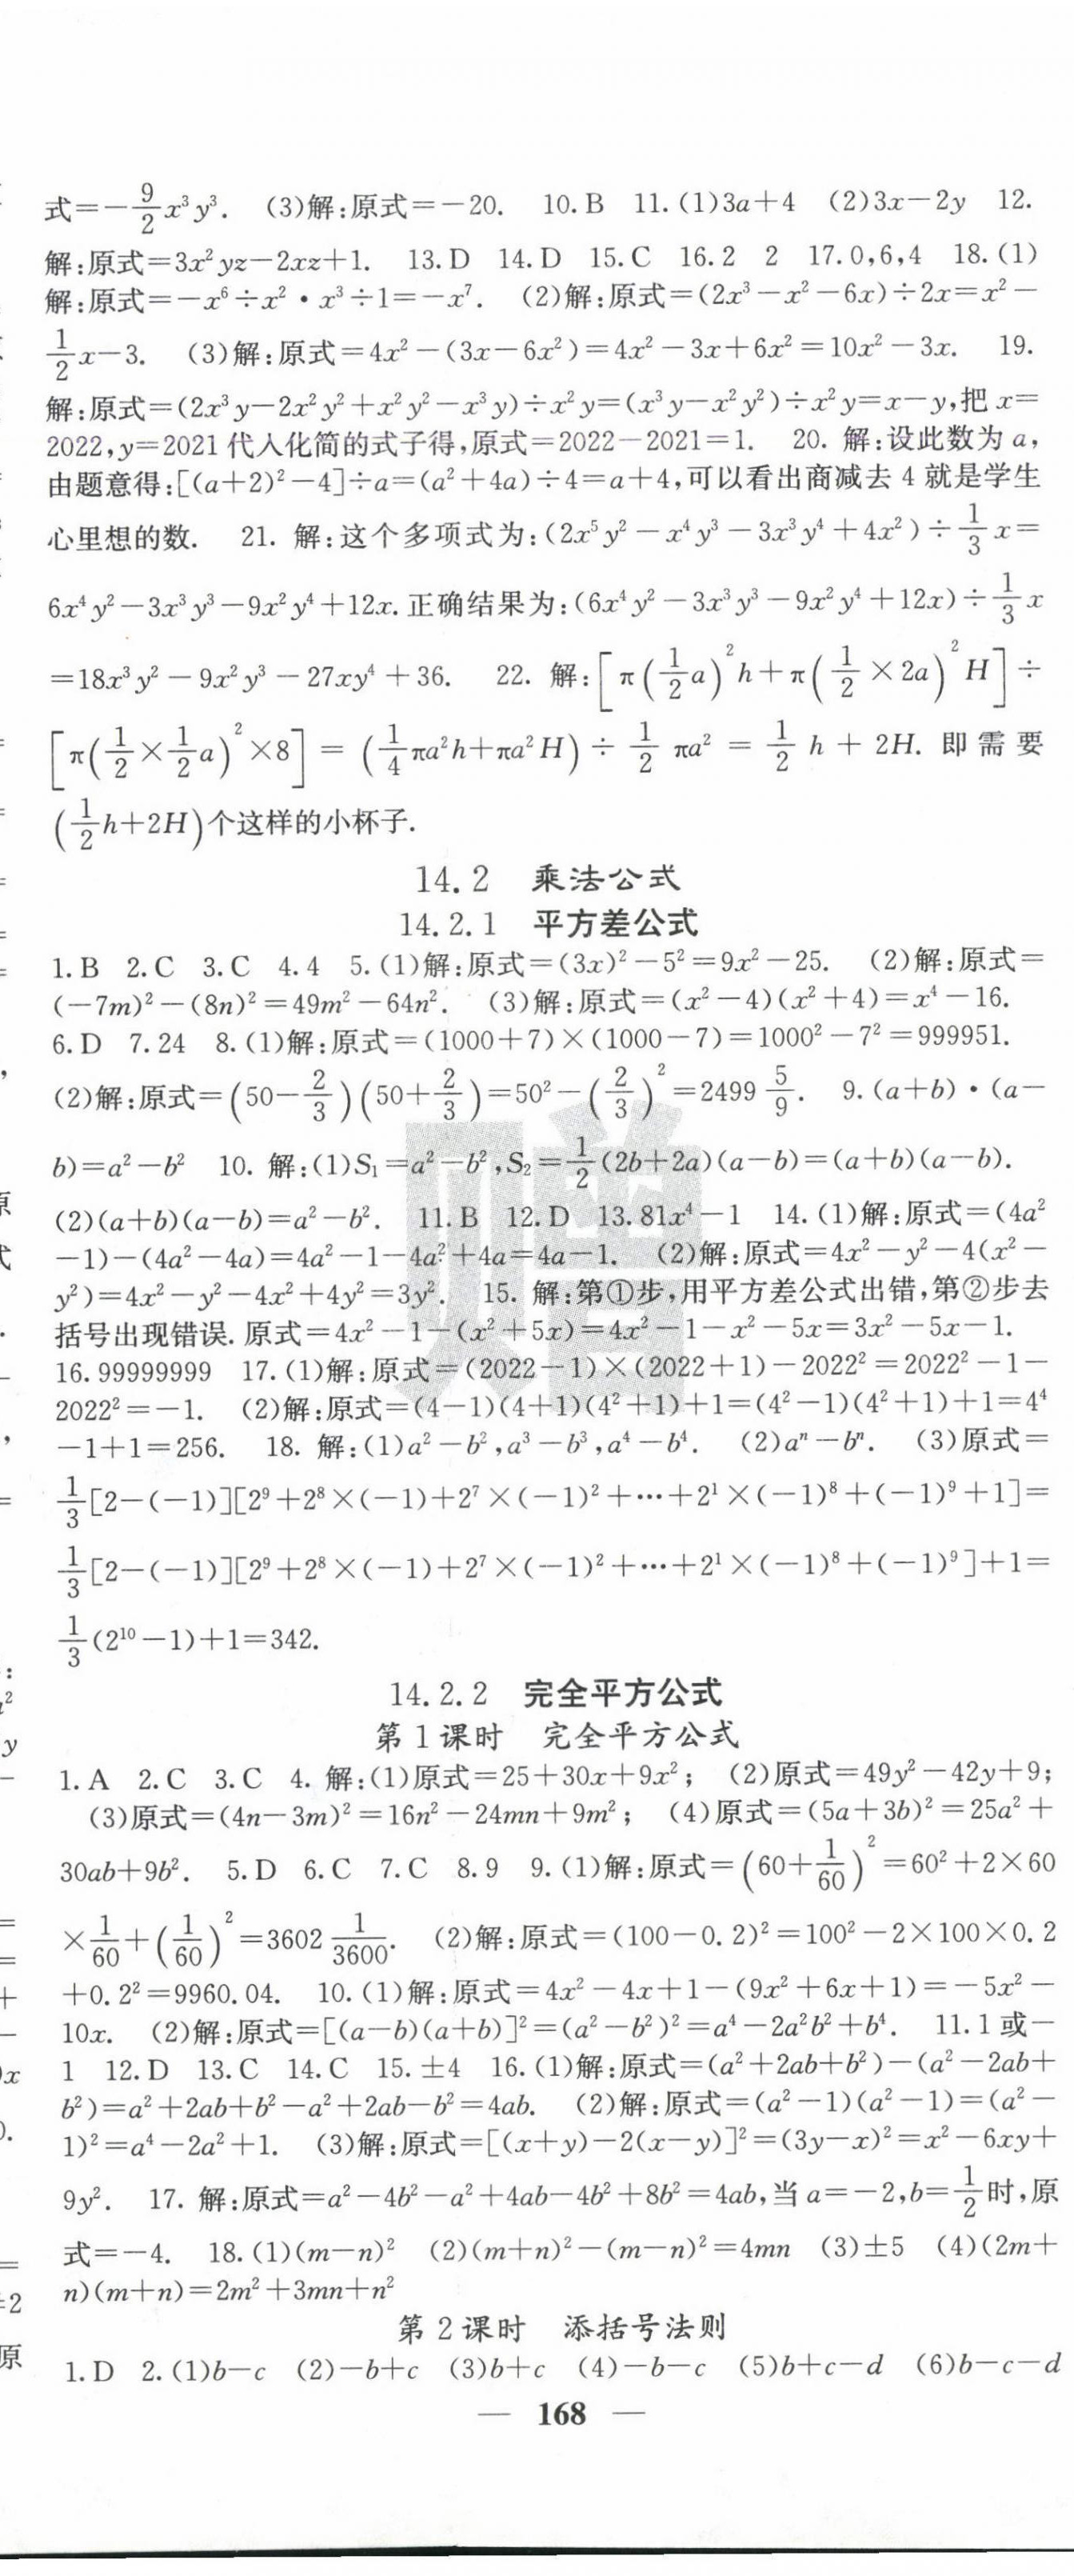 式=−9/2x³y³. (3)解:原式=−20. 10.B 11.(1)3a+4 (2)3x−2y 12.
解:原式=3x²yz−2xz+1. 13.D 14.D 15.C 16.2 2 17.0,6,4 18.(1)
解:原式=−x⁶÷x²·x³÷1=−x⁷. (2)解:原式=(2x³−x²−6x)÷2x=x²−
1/2x−3. (3)解:原式=4x²−(3x−6x²)=4x²−3x+6x²=10x²−3x. 19.
解:原式=(2x³y−2x²y²+x²y²−x³y)÷x²y=(x³y−x²y²)÷x²y=x−y,把x=
2022,y=2021代入化简的式子得,原式=2022−2021=1. 20. 解:设此数为a,
由题意得:[(a+2)²−4]÷a=(a²+4a)÷4=a+4,可以看出商减去4就是学生
心里想的数. 21. 解:这个多项式为:(2x⁵y²−x⁴y³−3x³y⁴+4x²)÷1/3x=
6x⁴y²−3x³y³−9x²y⁴+12x.正确结果为:(6x⁴y²−3x³y³−9x²y⁴+12x)÷1/3x
=18x³y²−9x²y³−27xy⁴+36. 22. 解:[π(1/2a)²h+π(1/2×2a)²H]÷
[π(1/2×1/2a)²×8]=(1/4πa²h+πa²H)÷1/2πa²=1/2h+2H.即需要
(1/2h+2H)个这样的小杯子.
14.2 乘法公式
14.2.1 平方差公式
1.B 2.C 3.C 4.4 5.(1)解:原式=(3x)²−5²=9x²−25. (2)解:原式=
(−7m)²−(8n)²=49m²−64n². (3)解:原式=(x²−4)(x²+4)=x⁴−16.
6.D 7.24 8.(1)解:原式=(1000+7)×(1000−7)=1000²−7²=999951.
(2)解:原式=(50−2/3)(50+2/3)=50²−(2/3)²=2499 5/9. 9.(a+b)·(a−
b)=a²−b² 10. 解:(1)S₁=a²−b²,S₂=1/2(2b+2a)(a−b)=(a+b)(a−b).
(2)(a+b)(a−b)=a²−b². 11.B 12.D 13.81x⁴−1 14.(1)解:原式=(4a²
−1)−(4a²−4a)=4a²−1−4a²+4a=4a−1. (2)解:原式=4x²−y²−4(x²−
y²)=4x²−y²−4x²+4y²=3y². 15. 解:第①步,用平方差公式出错,第②步去
括号出现错误.原式=4x²−1−(x²+5x)=4x²−1−x²−5x=3x²−5x−1.
16.99999999 17.(1)解:原式=(2022−1)×(2022+1)−2022²=2022²−1−
2022²=−1. (2)解:原式=(4−1)(4+1)(4²+1)+1=(4²−1)(4²+1)+1=4⁴
−1+1=256. 18. 解:(1)a²−b²,a³−b³,a⁴−b⁴. (2)aⁿ−bⁿ. (3)原式=
1/3[2−(−1)][2⁹+2⁸×(−1)+2⁷×(−1)²+…+2¹×(−1)⁸+(−1)⁹+1]=
1/3[2−(−1)][2⁹+2⁸×(−1)+2⁷×(−1)²+…+2¹×(−1)⁸+(−1)⁹]+1=
1/3(2¹⁰−1)+1=342.
14.2.2 完全平方公式
第1课时 完全平方公式
1.A 2.C 3.C 4. 解:(1)原式=25+30x+9x²; (2)原式=49y²−42y+9;
(3)原式=(4n−3m)²=16n²−24mn+9m²; (4)原式=(5a+3b)²=25a²+
30ab+9b². 5.D 6.C 7.C 8.9 9.(1)解:原式=(60+1/60)²=60²+2×60
×1/60+(1/60)²=3602 1/3600. (2)解:原式=(100−0.2)²=100²−2×100×0.2
+0.2²=9960.04. 10.(1)解:原式=4x²−4x+1−(9x²+6x+1)=−5x²−
10x. (2)解:原式=[(a−b)(a+b)]²=(a²−b²)²=a⁴−2a²b²+b⁴. 11.1或−
1 12.D 13.C 14.C 15.±4 16.(1)解:原式=(a²+2ab+b²)−(a²−2ab+
b²)=a²+2ab+b²−a²+2ab−b²=4ab. (2)解:原式=(a²−1)(a²−1)=(a²−
1)²=a⁴−2a²+1. (3)解:原式=[(x+y)−2(x−y)]²=(3y−x)²=x²−6xy+
9y². 17. 解:原式=a²−4b²−a²+4ab−4b²+8b²=4ab,当a=−2,b=1/2时,原
式=−4. 18.(1)(m−n)² (2)(m+n)²−(m−n)²=4mn (3)±5 (4)(2m+
n)(m+n)=2m²+3mn+n²
第2课时 添括号法则
1.D 2.(1)b−c (2)−b+c (3)b+c (4)−b−c (5)b+c−d (6)b−c−d
— 168 —